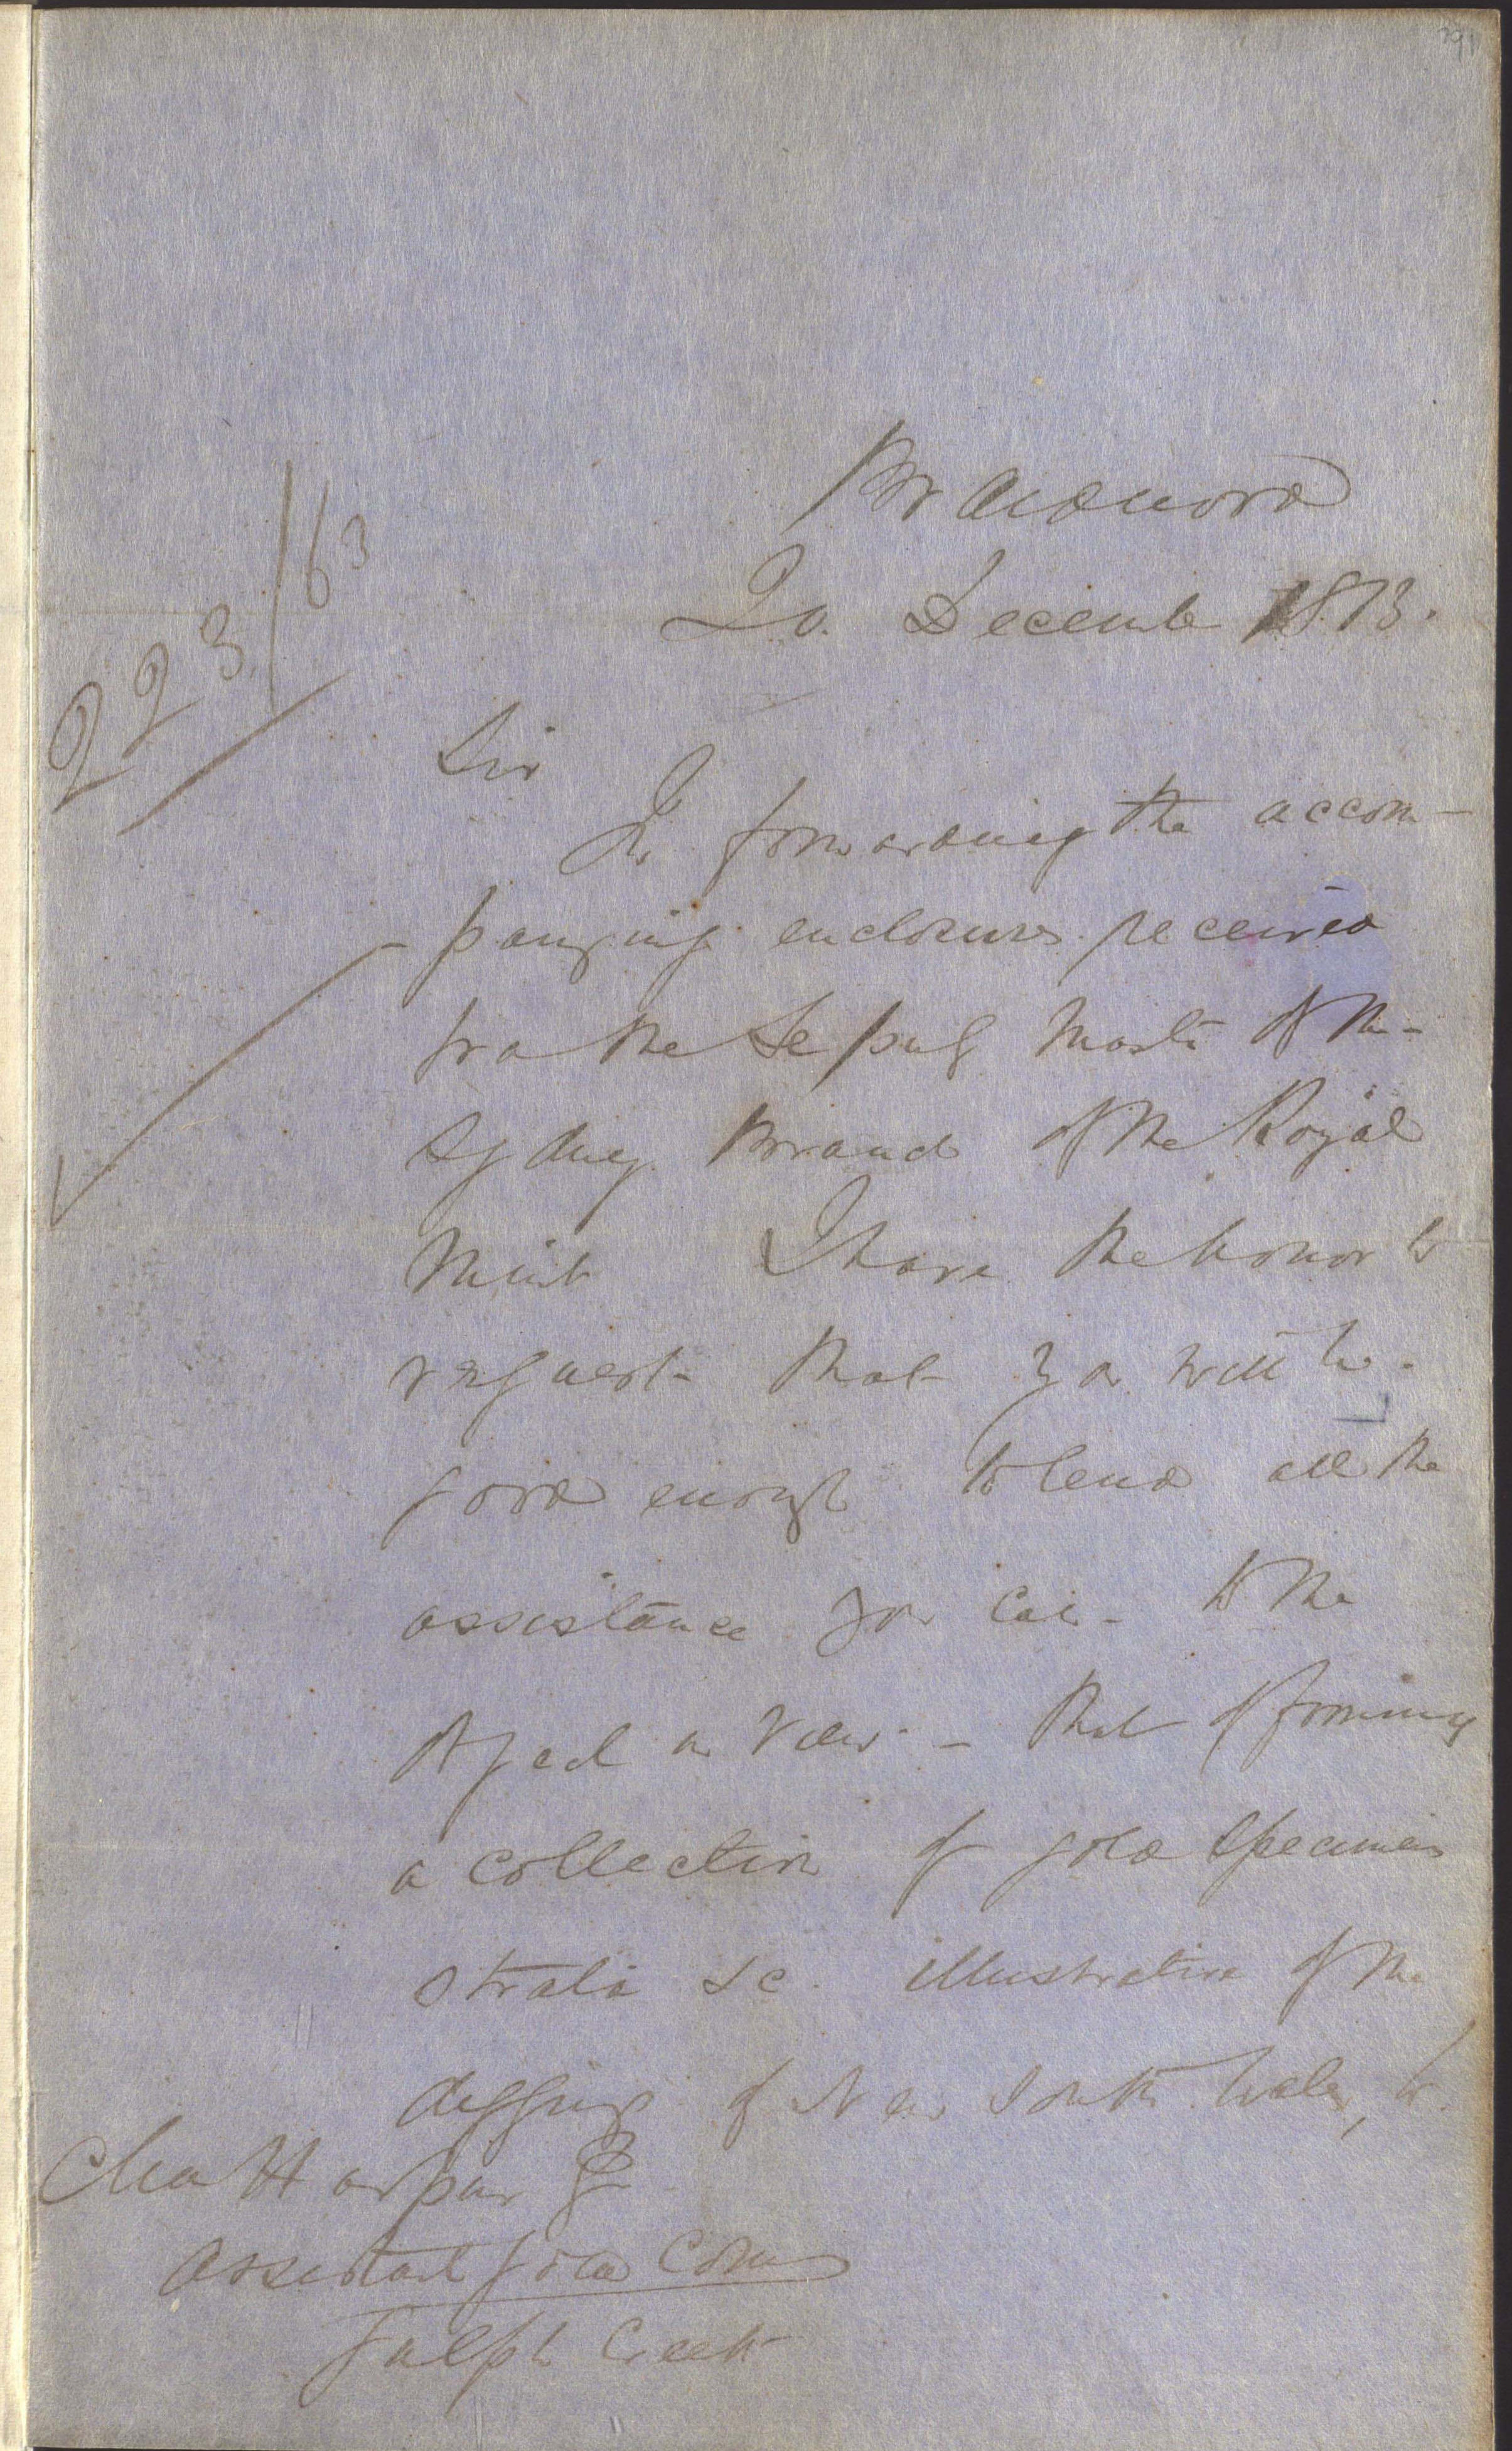 291
Braidwood
20. December 1873.
223/63
Sir
In forwarding the accom-
-panying enclosures received
from the Deputy Master of the
Sydney Branch of the Royal
Mint I have the honor to
request that you will be
good enough to lend all the
assistance you can to the
object in view - that of forming
a collection of gold specimens
strata &c. illustrative of the
diggings of New South Wales, to
Chas Harpur Esq
Assistant Gold Comr
Gulph Creek